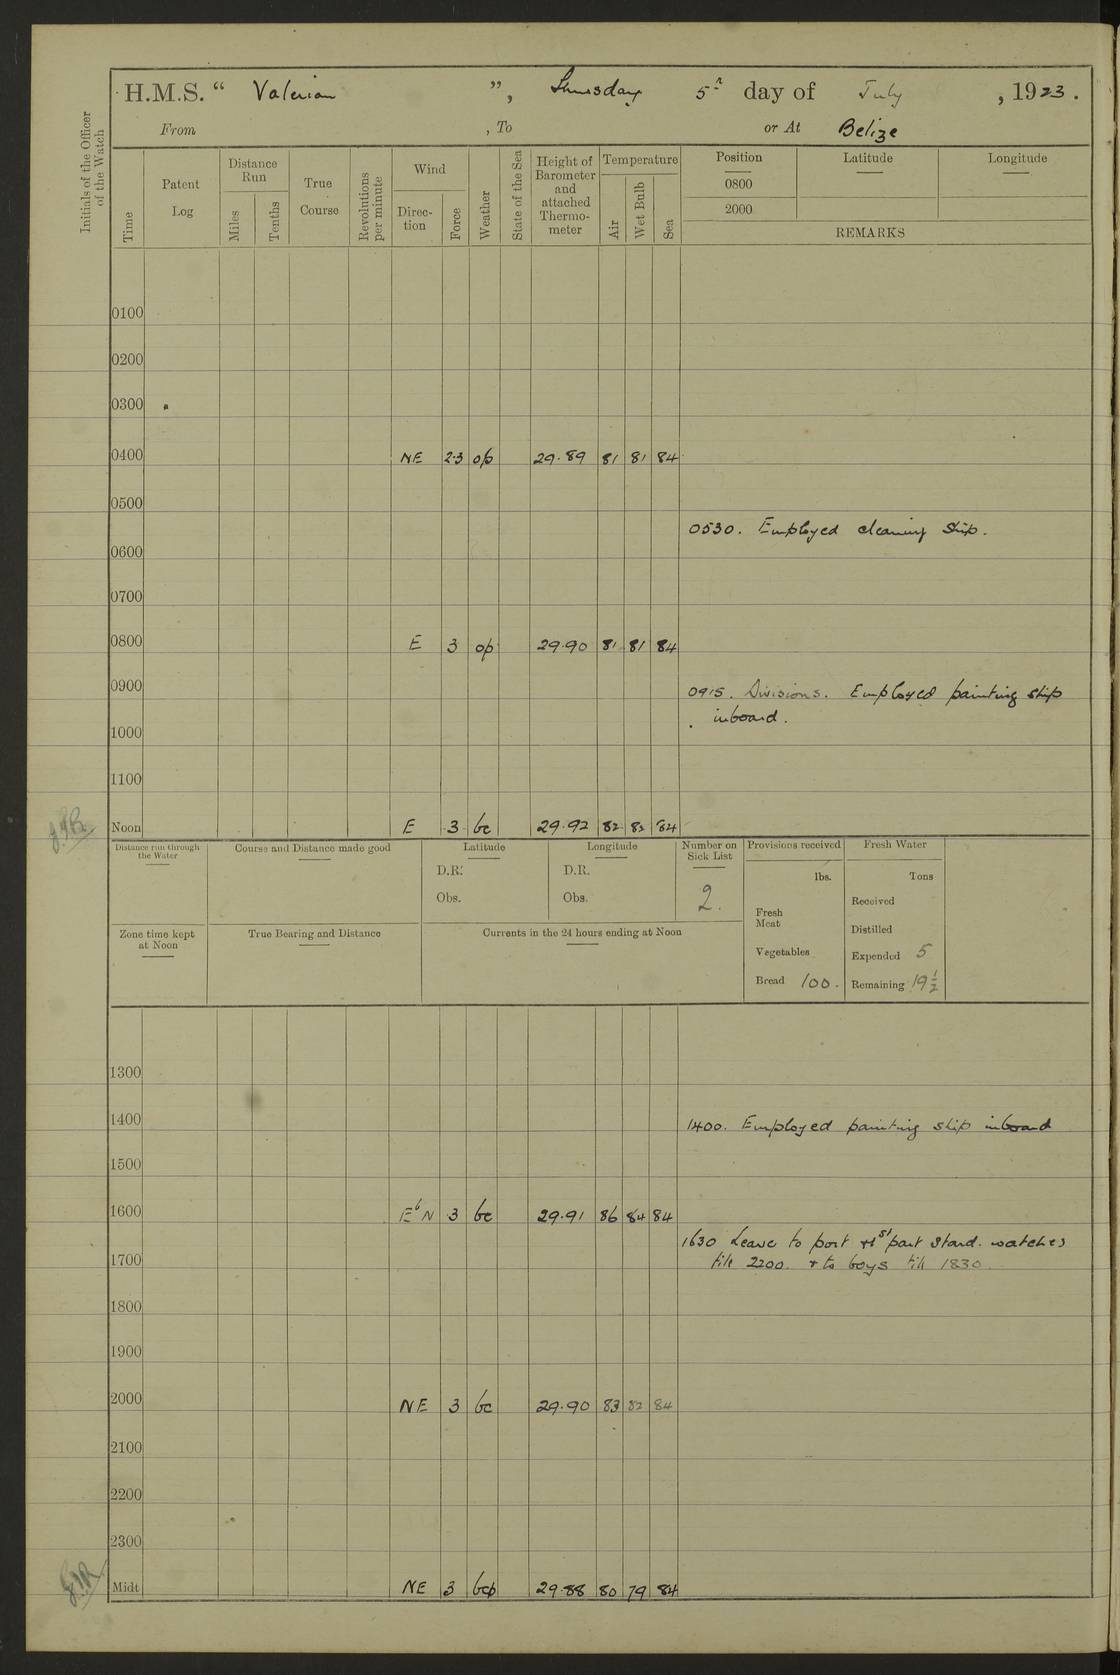 H.M.S. “ Valerian ”, Thursday 5th day of July , 1923 .
From , To or At Belize
Initials of the Officer of the Watch
Time
Patent Log
Distance Run
Miles
Tenths
True Course
Revolutions per minute
Wind
Direction
Force
Weather
State of the Sea
Height of Barometer and attached Thermometer
Temperature
Air
Wet Bulb
Sea
Position
0800
2000
Latitude
Longitude
REMARKS
0100
0200
0300
0400 NE 2·3 op 29·89 81 81 84
0500
0530. Employed cleaning Ship.
0600
0700
0800 E 3 op 29·90 81 81 84
0900
0915. Divisions. Employed painting ship
inboard.
1000
1100
Noon E 3 bc 29·92 82 82 84
Distance run through the Water
Course and Distance made good
Latitude
D.R.
Obs.
Longitude
D.R.
Obs.
Number on Sick List
2.
Provisions received
lbs.
Fresh Meat
Vegetables
Bread 100.
Fresh Water
Tons
Received
Distilled
Expended 5
Remaining 19½
Zone time kept at Noon
True Bearing and Distance
Currents in the 24 hours ending at Noon
1300
1400
1400. Employed painting ship inboard
1500
1600 E b N 3 bc 29·91 86 84 84
1630 Leave to port + 1st part Starbd. watches
till 2200. + to boys till 1830.
1700
1800
1900
2000 NE 3 bc 29·90 83 82 84
2100
2200
2300
Midt NE 3 bcp 29·88 80 79 84